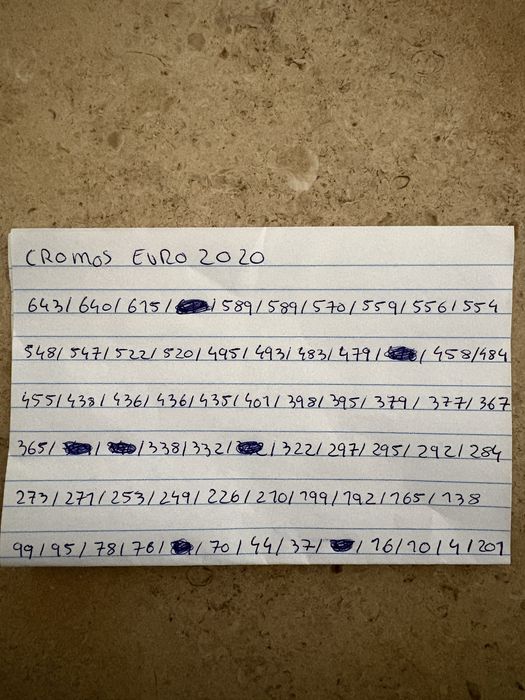 CROMOS EURO 2020
643/640/615/ /589/589/570/559/556/554
548/547/522/520/495/493/483/479/ /458/484
455/438/436/436/435/401/398/395/379/377/367
365/ / /338/332/ /322/297/295/292/284
273/271/253/249/226/210/199/192/165/138
99/95/78/76/ /70/44/37/ /16/10/4/201